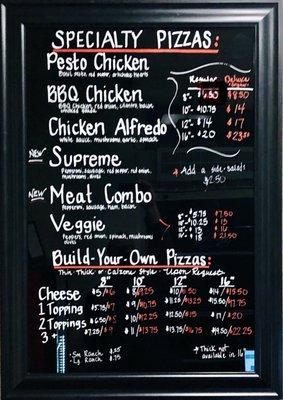 SPECIALTY PIZZAS:
Pesto Chicken
Basil, red pepper, artichoke hearts
BBQ Chicken
BBQ Chicken, red onion, cilantro, bacon
Chicken Alfredo
White sauce, mushrooms, garlic, spinach
Regular Deluxe
8"- $6.50 $8.50
10"- $10.75 $14
12"- $14 $17
16"- $20 $23.50
* Add a side-salad:
$2.50
NEW Supreme
Pepperoni, sausage, red pepper, red onion,
mushrooms, olives
NEW Meat Combo
Pepperoni, sausage, ham, bacon
Veggie
Peppers, red onion, spinach, mushrooms
olives
8"- $5.75 $7.50
10"- $10.25 $13
12"- $13 $15
16"- $18 $21.50
Build-Your-Own Pizzas:
Thin, Thick or Calzone Style - Upon Request
8" 10" 12" 16"
Cheese $5/$6 $8/$9.25 $10/$11.50 $14/$15.50
1 Topping $5.75/$7 $9/$10.75 $11.25/$13.25 $15.50/$17.75
2 Toppings $6.50/$8 $10/$12.25 $12.50/$15 $17/$20
3+ $7.25/$9 $11/$13.75 $13.75/$16.75 $18.50/$22.25
• Sm Ranch $.25
• Lg Ranch $.75
* Thick not
available in 16"